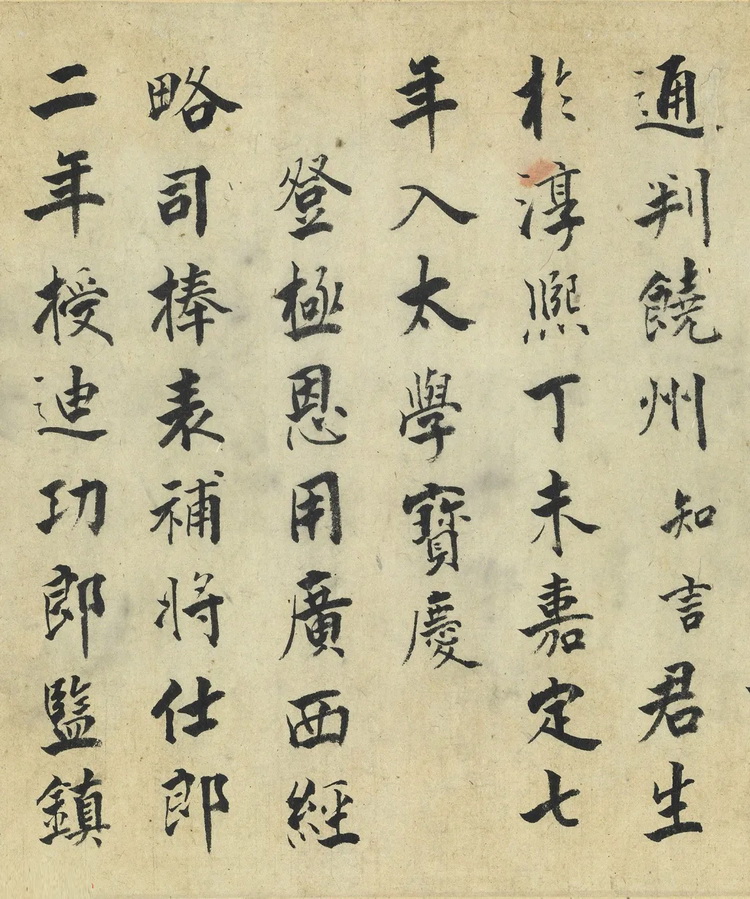 通判饒州知言君生
於淳熙丁未嘉定七
年入太學寶慶
登極恩用廣西經
略司捧表補將仕郎
二年授迪功郎監鎮